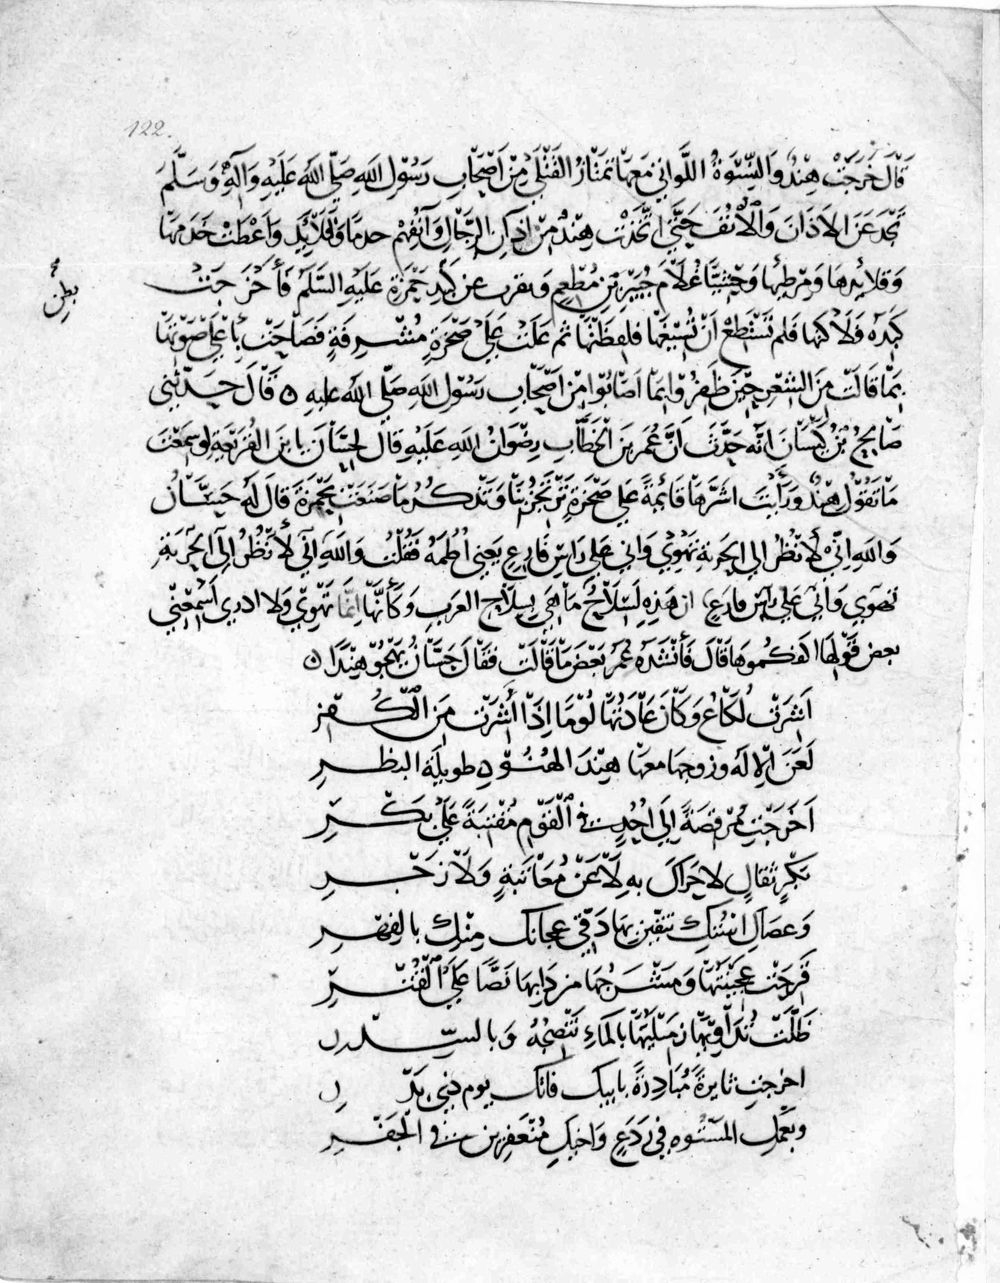 122.
قَالَ خَرَجَتْ هِنْدٌ وَالنِّسْوَةُ اللَّوَاتِي مَعَهَا تَمْتَارُ القَتْلَى مِنْ أَصْحَابِ رَسُوْلِ اللهِ صَلَّى اللهُ عَلَيْهِ وَآلِهِ وَسَلَّمَ
تَجْدَعَنَ الاَذَانَ وَالْأُنُفَ حَتَّى اتَّخَذَتْ هِنْدٌ مِنْ اذان الرِّجَالِ وَآنُفِهِمْ خدمًا وَقَلَائِدَ وَاَعْطَتْ خَدَمَهَا
وَقَلَائِدَهَا وَمِرْطِيهَا وَحْشِيًّا غُلَامَ جُبَيْرِ بْنِ مُطْعِمٍ وبقرت عن كَبِدِ حَمْزَةَ عَلَيْهِ السَّلَمُ فَأَخْرَجَتْ
بطن
كَبِدَهُ وَلَاكَتْهَا فَلَم تَسْتَطِعْ اَنْ تُسِيْغَهَا فلفظتْهَا ثم عَلَتْ عَلَى صَخْرَةٍ مُشْرِفَةٍ فَصَاحَتْ بِأَعْلَى صَوْتِهَا
بِمَا قَالَتْ مِنَ الشِّعْرِ حِيْنَ ظَفِرُوْا بِمَا اَصَابُوْا مِنْ اَصْحَابِ رَسُوْلِ اللهِ صَلَّى اللهُ عليهِ ٥ قَالَ حَدَّثَنِي
صَالِحُ بْنُ كَيْسَانَ اَنَّهُ حَدَّثَ اَنَّ عُمَرَ بنَ الخَطَّابِ رِضْوَانُ اللهِ عَلَيْهِ قَالَ لِحَسَّانَ يا بنَ الفُرَيْعَةِ لَوسَمِعْتَ
مَا تَقُوْلُ هِنْدٌ وَرَأَيْتَ اشَرَهَا قَائِمَةً علي صَخْرَةٍ تَرْتَجِزُ بِنَا وَتَذْكُرُ مَا صَنَعَتْ بِحَمْزَةَ قَالَ لَهُ حَسَّانُ
وَاللهِ اِنِّي لَأَنْظُرُ الى الحَرْبَةِ تَهْوِيْ وَانِي عَلى رَاسِ فَارِعٍ يَعْنِي أُطُمَهُ فَقُلْتُ وَاللهِ اِنِّي لَأَنْظُرُ اِلَى الحَرْبَةِ
تهوِي وَانّي عَلي رَأسِ فارعٍ ان هَذِهِ لَسِلَاحٌ مَا هِيَ بِسِلَاحِ العَرَبِ وَكَأَنَّهَا اِنَّمَا تَهْوِيْ وَلا ادري اَسْمِعْنِي
بعضَ قَوْلِهَا اكفكموهَا قَالَ فَأَنْشَدَهُ عُمَرُ بَعْضَ مَا قَالَتْ فقَالَ حَسَّانُ يَهْجُوْ هِنْدًا ٥
اَشِرَتْ لَكَاعِ وَكَانَ عَادَتُهَا لُوْمًا اِذَا أَشِرَتْ مَعَ الْكُفْرِ
لَعَنَ الإِلَهُ وزوجهَا معهَا هِنْدَ الهُنُوْدِ طويلةَ البَظْرِ
اَخَرَجْتِ مُرْقِصَةً اِلَى اُحُدٍ فِي الْقَوْمِ مُقْتِبَةً عَلَى بَكْرِ
بَكْرٍ ثقالٍ لا حَرَاكَ بِهِ لَا عَنْ مُعَاتَبَةٍ وَلَا زَجْرِ
وَعَصَاكِ اسْتُكِ تتقين بِهَا دَقِّي عجانك مِنْكِ بِالفِهْرِ
قَرِحَتْ عَجِيْزَتُهَا وَمَشْرَجُهَا مِن دَأْبِهَا نَصًّا عَلَى الْقُتْرِ
ظَلَّتْ تُدَاوِيْهَا زَمِيْلَتُهَا بالمَاءِ تَنْضَحُهُ وَبالسِّدْرِ
اخرجتِ ثائِرَةً مُبَادِرَةً بأبيك فاتك يوم ذي بَدْرِ
وبعَمِّكِ المَسْتُوهِ في رَدَعٍ وَاخيكِ مُنْعَفِرَيْنِ في الجَفْرِ